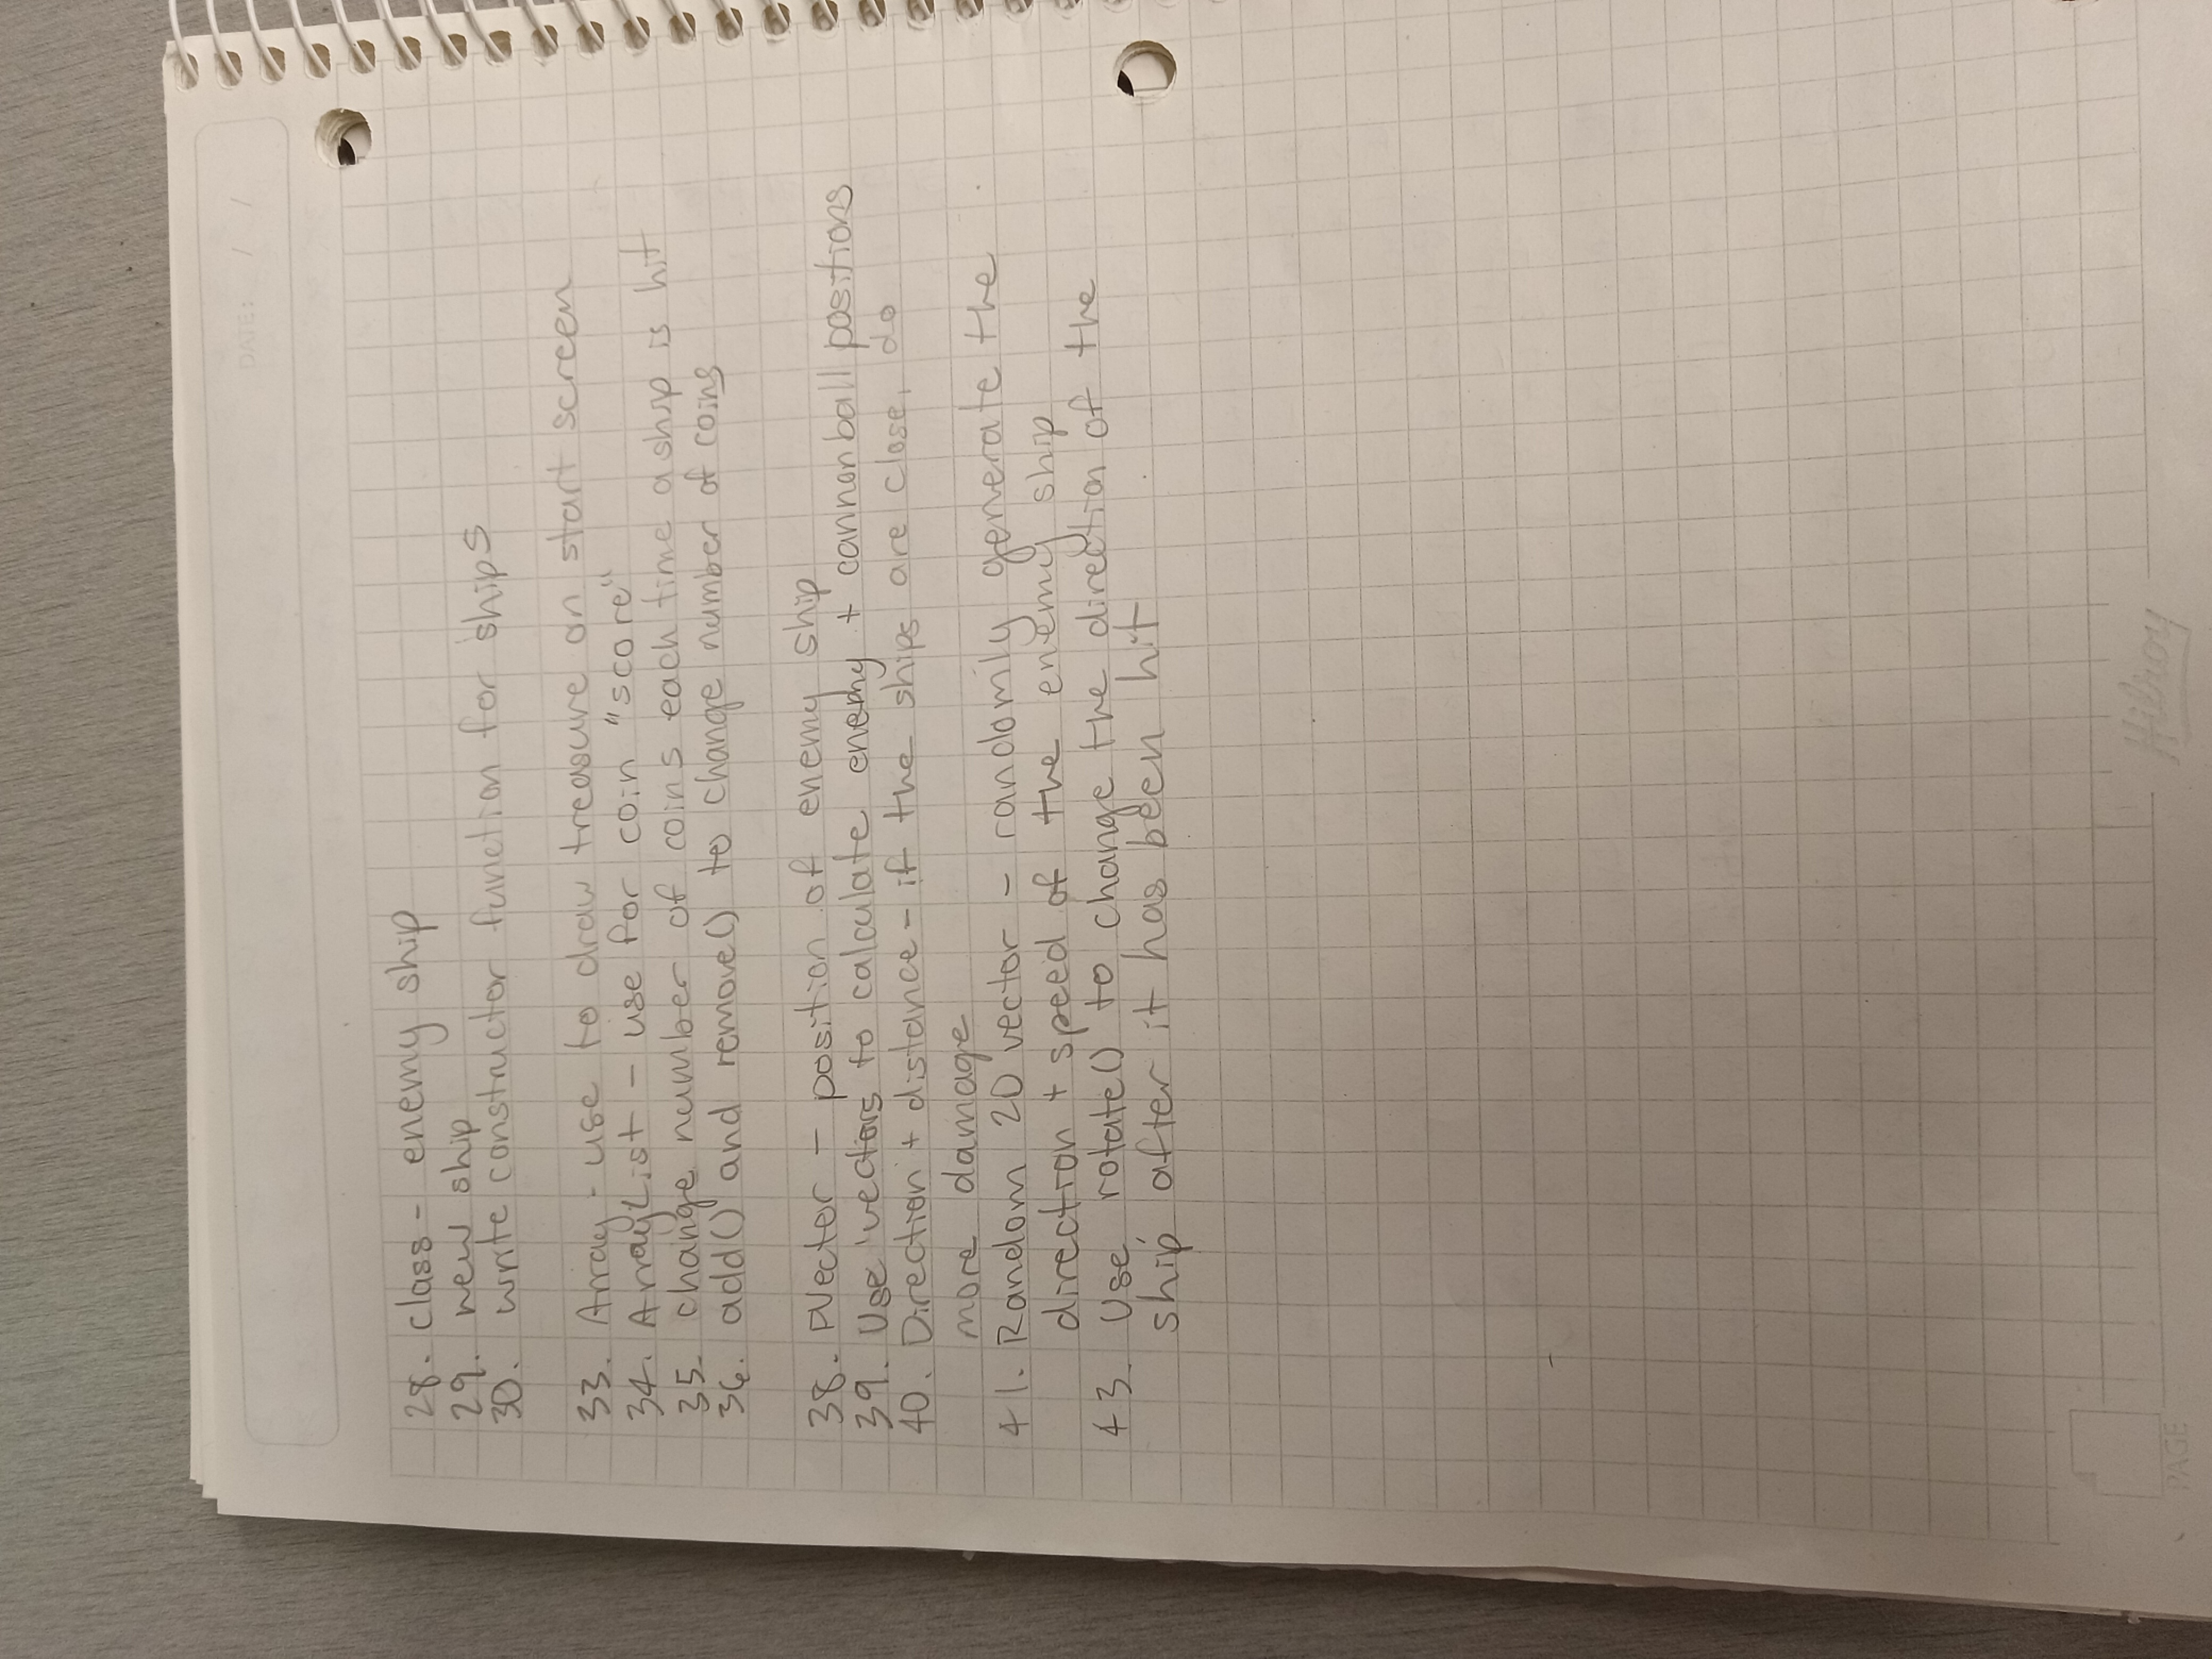 DATE: / /
28. class - enemy ship
29. new ship
30. write constructor function for ships
33. Array - use to draw treasure on start screen
34. ArrayList - use for coin "score"
35. change number of coins each time a ship is hit
36. add() and remove() to change number of coins
38. PVector - position of enemy ship
39. Use vectors to calculate enemy + cannonball positions
40. Direction + distance - if the ships are close, do
more damage
41. Random 2D vector - randomly generate the
direction + speed of the enemy ship
43. Use rotate() to change the direction of the
ship after it has been hit
Hilroy
PAGE